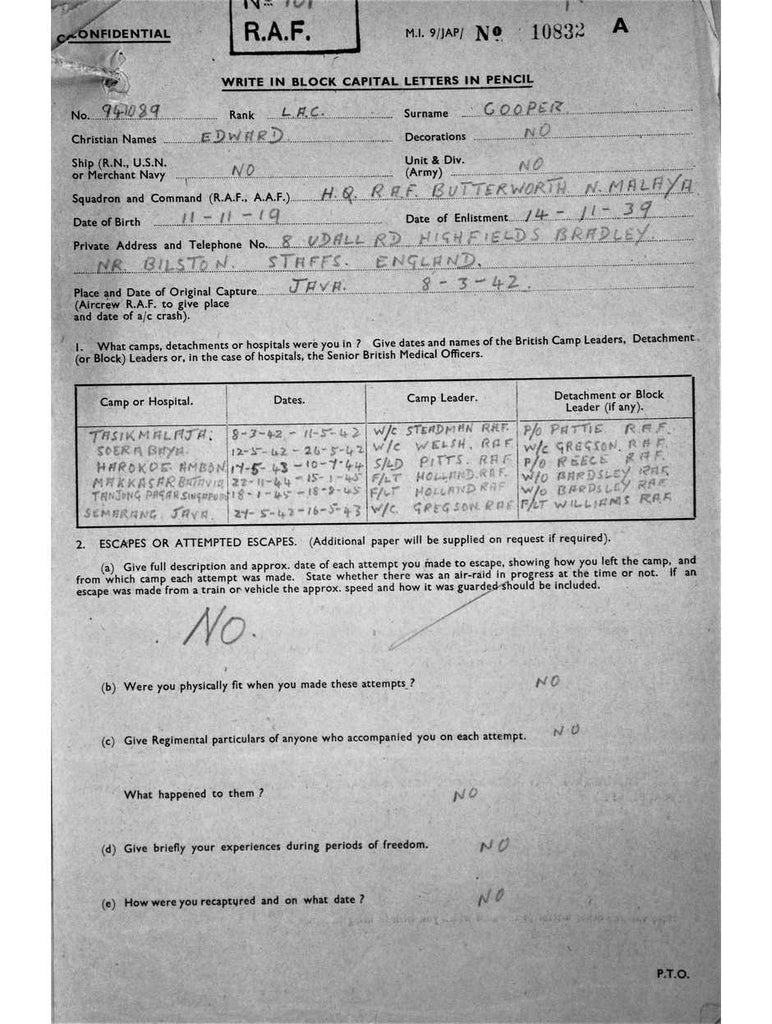 R.A.F.
CONFIDENTIAL
M.I. 9/JAP/ No 10832 A
WRITE IN BLOCK CAPITAL LETTERS IN PENCIL
No. 941089 Rank L.A.C. Surname COOPER
Christian Names EDWARD Decorations NO
Ship (R.N., U.S.N. or Merchant Navy NO Unit & Div. (Army) NO
Squadron and Command (R.A.F., A.A.F.) H.Q. R.A.F. BUTTERWORTH N. MALAYA
Date of Birth 11-11-19 Date of Enlistment 14-11-39
Private Address and Telephone No. 8 UDALL RD HIGHFIELDS BRADLEY
NR BILSTON. STAFFS. ENGLAND.
Place and Date of Original Capture JAVA. 8-3-42.
(Aircrew R.A.F. to give place
and date of a/c crash).
1. What camps, detachments or hospitals were you in ? Give dates and names of the British Camp Leaders, Detachment
(or Block) Leaders or, in the case of hospitals, the Senior British Medical Officers.
Camp or Hospital. Dates. Camp Leader. Detachment or Block Leader (if any).
TASIKMALAJA. 8-3-42 - 11-5-42 W/C STEADMAN RAF. P/O PATTIE R.A.F.
SOERABAYA. 12-5-42 - 26-5-42 W/C WELSH. RAF W/C GREGSON. RAF.
HAROKOE AMBON 17-5-43 - 10-7-44 S/LD PITTS. RAF P/O REECE RAF.
MAKKASAR BATAVIA 22-11-44 - 15-1-45 F/LT HOLLAND. RAF W/O BARDSLEY RAF
TANJONG PAGAR SINGAPORE 18-1-45 - 18-8-45 F/LT HOLLAND RAF W/O BARDSLEY RAF
SEMARANG. JAVA. 27-5-42 - 16-5-43 W/C. GREGSON. RAF F/LT WILLIAMS RAF
2. ESCAPES OR ATTEMPTED ESCAPES. (Additional paper will be supplied on request if required).
(a) Give full description and approx. date of each attempt you made to escape, showing how you left the camp, and
from which camp each attempt was made. State whether there was an air-raid in progress at the time or not. If an
escape was made from a train or vehicle the approx. speed and how it was guarded should be included.
NO.
(b) Were you physically fit when you made these attempts ? NO
(c) Give Regimental particulars of anyone who accompanied you on each attempt. NO
What happened to them ? NO
(d) Give briefly your experiences during periods of freedom. NO
(e) How were you recaptured and on what date ? NO
P.T.O.